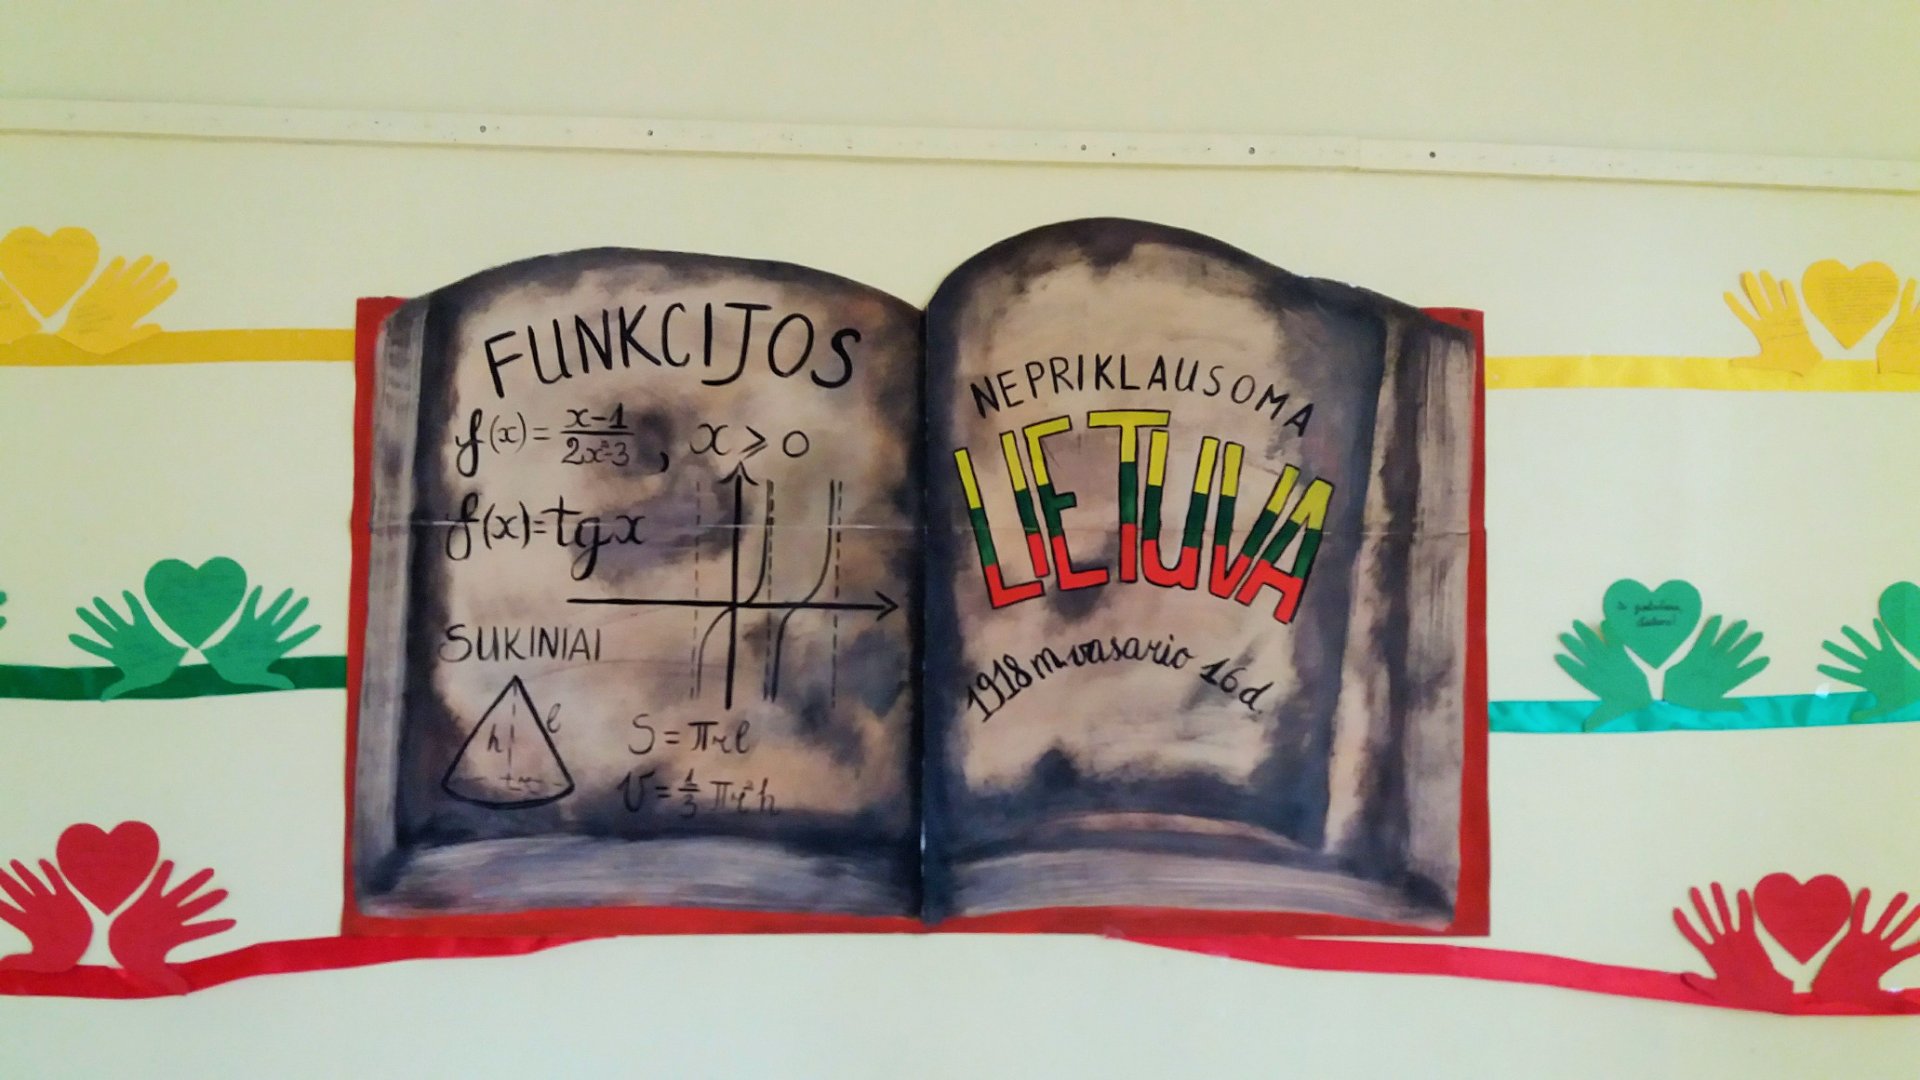 FUNKCIJOS
f(x) = x-1 / 2x²-3 , x ⩾ 0
f(x)=tgx
SUKINIAI
h l
r
S = πrl
V = 1/3 πr²h
NEPRIKLAUSOMA
LIETUVA
1918 m. vasario 16 d.